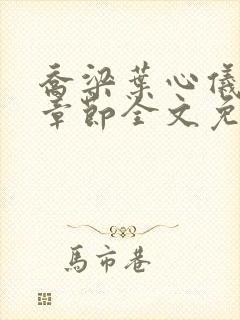 喬梁葉心儀
章節全文免
馬市巷